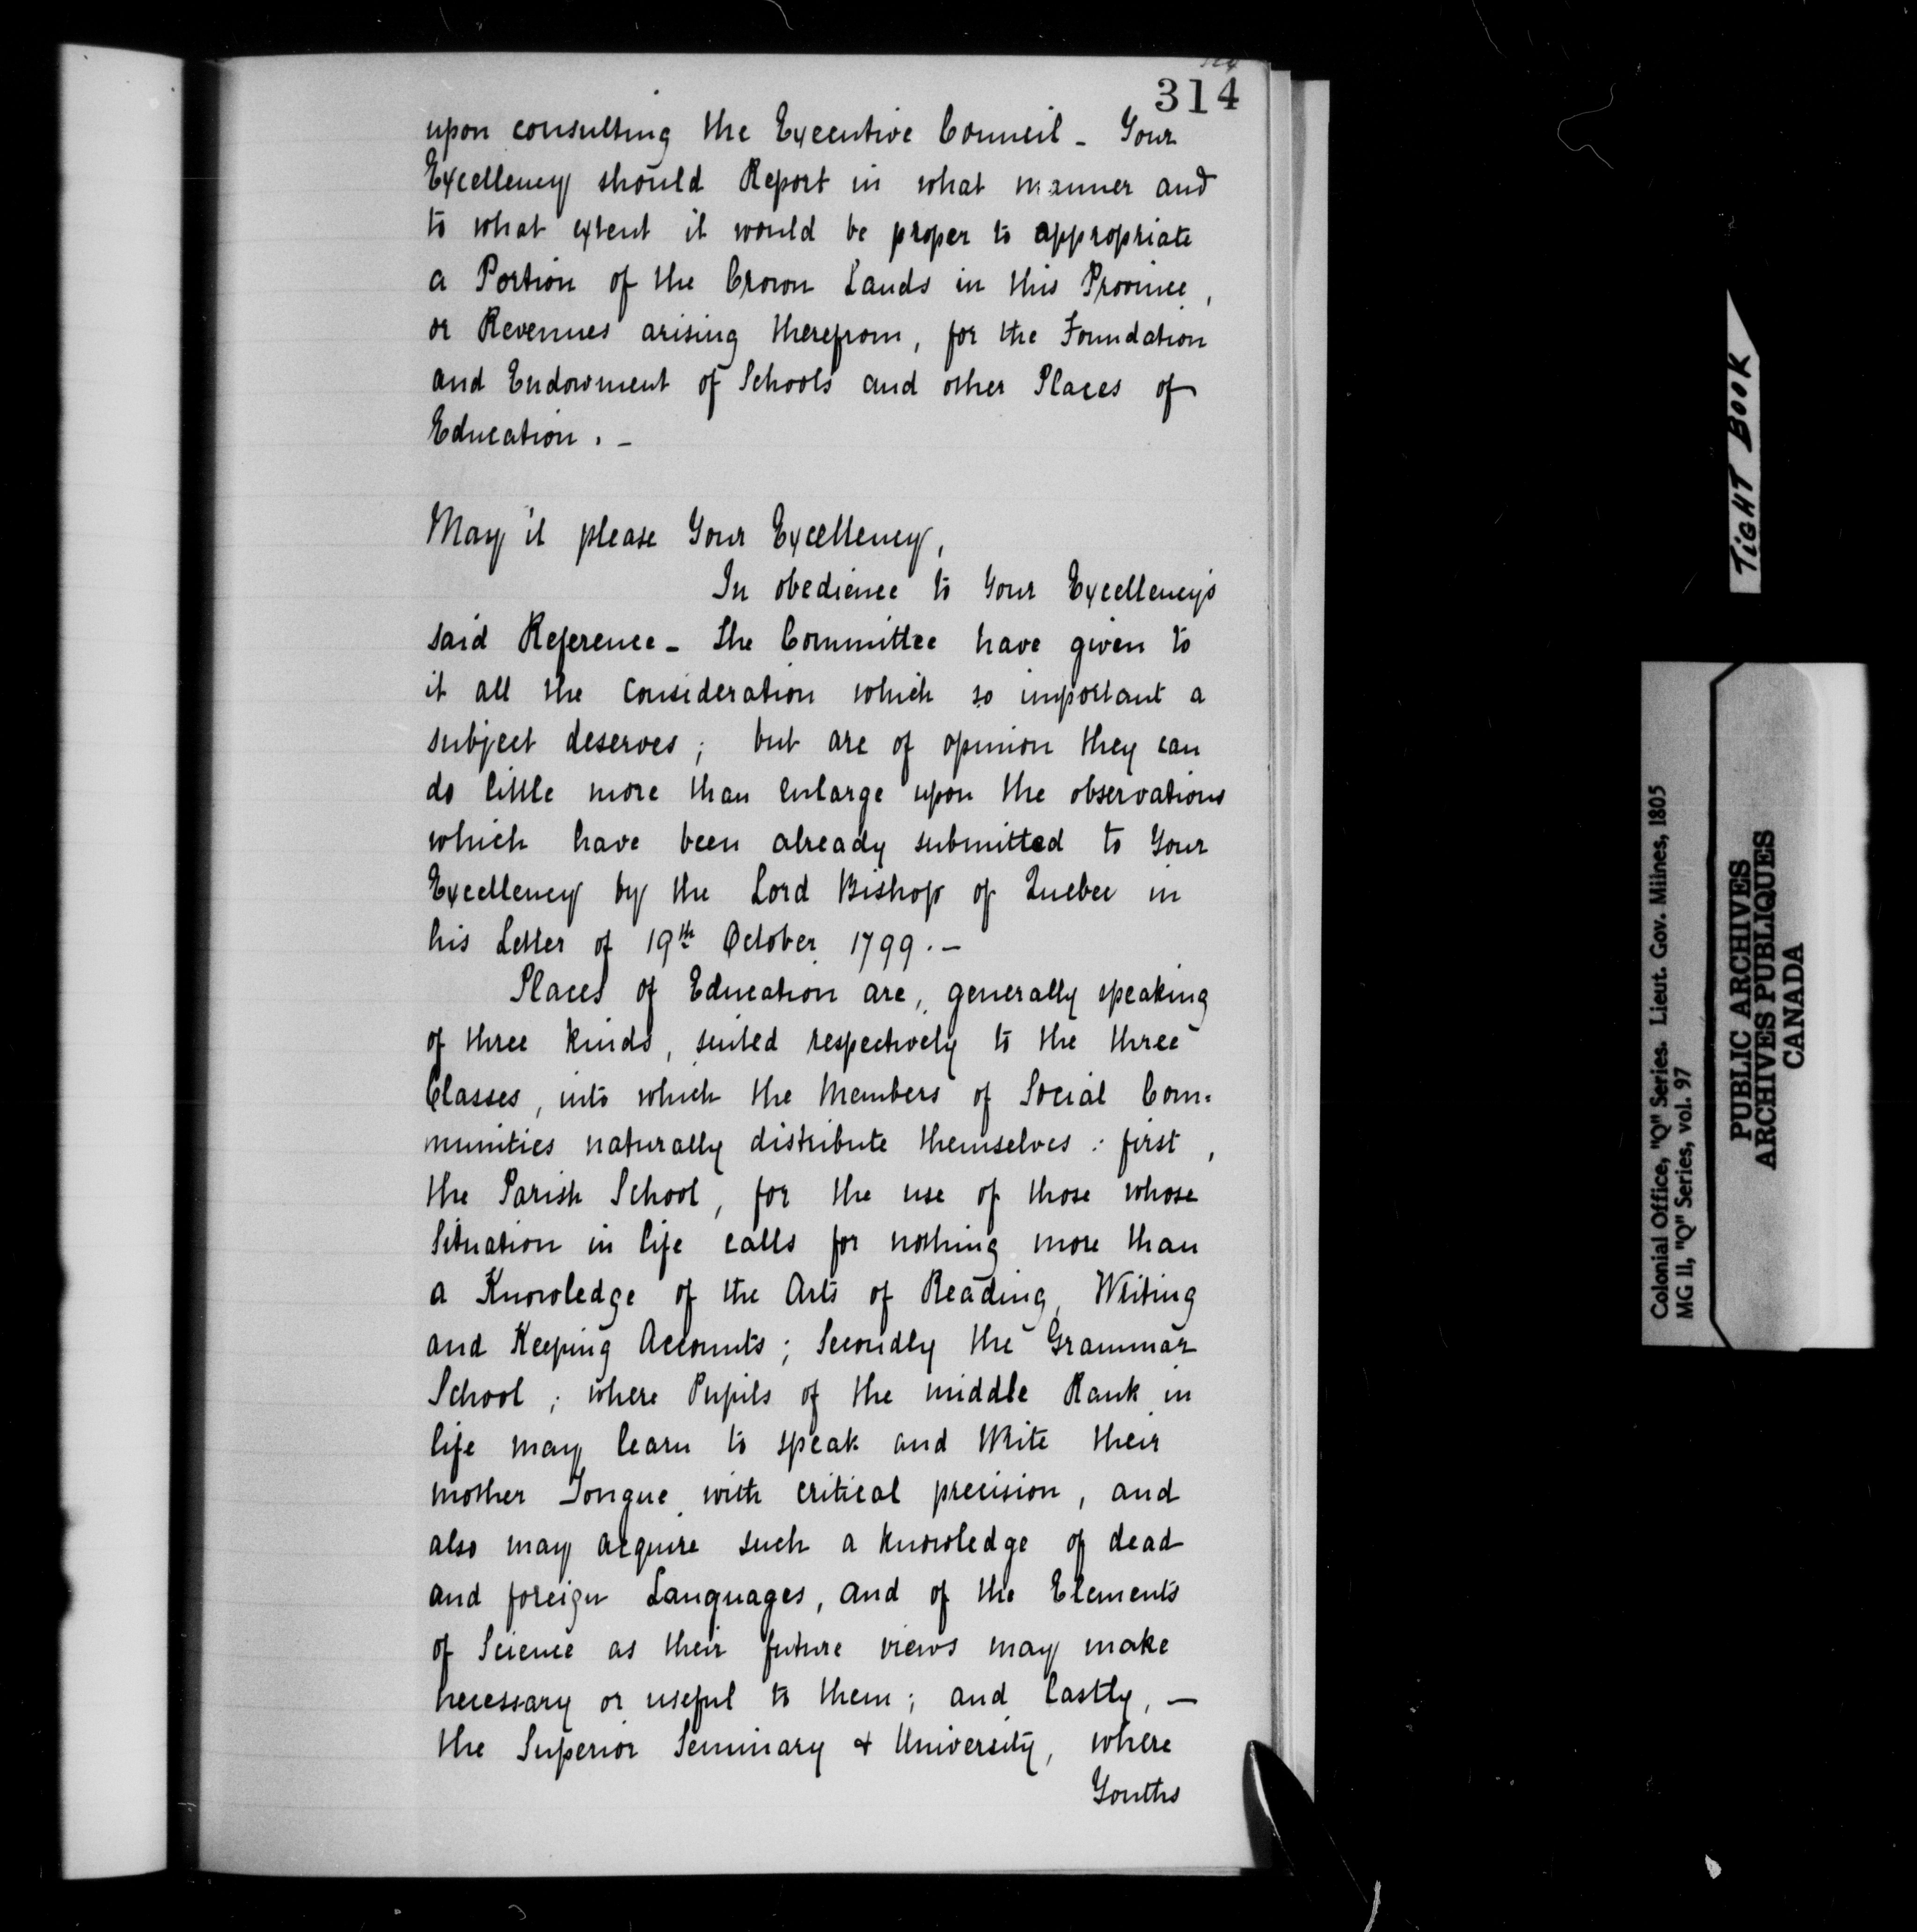 314
upon consulting the Executive Council - Your
Excellency should Report in what manner and
to what extent it would be proper to appropriate
a Portion of the Crown Lands in this Province,
or Revenues arising therefrom, for the Foundation
and Endowment of Schools and other Places of
Education. -
May it please Your Excellency,
In obedience to Your Excellency's
said Reference - The Committee have given to
it all the consideration which so important a
subject deserves; but are of opinion they can
do little more than enlarge upon the observations
which have been already submitted to Your
Excellency by the Lord Bishop of Quebec in
his Letter of 19th October 1799. -
Places of Education are, generally speaking
of three kinds, suited respectively to the three
Classes, into which the Members of Social Com=
munities naturally distribute themselves: first,
the Parish School, for the use of those whose
Situation in life calls for nothing more than
a Knowledge of the Arts of Reading, Writing
and Keeping Accounts; Secondly the Grammar
School; where Pupils of the middle Rank in
life may learn to speak and Write their
mother Tongue with critical precision, and
also may acquire such a knowledge of dead
and foreign Languages, and of the Elements
of Science as their future views may make
necessary or useful to them; and lastly, -
the Superior Seminary & University, where
Youths
TIGHT BOOK
Colonial Office, "Q" Series. Lieut. Gov. Milnes, 1805
MG 11, "Q" Series, vol. 97
PUBLIC ARCHIVES
ARCHIVES PUBLIQUES
CANADA